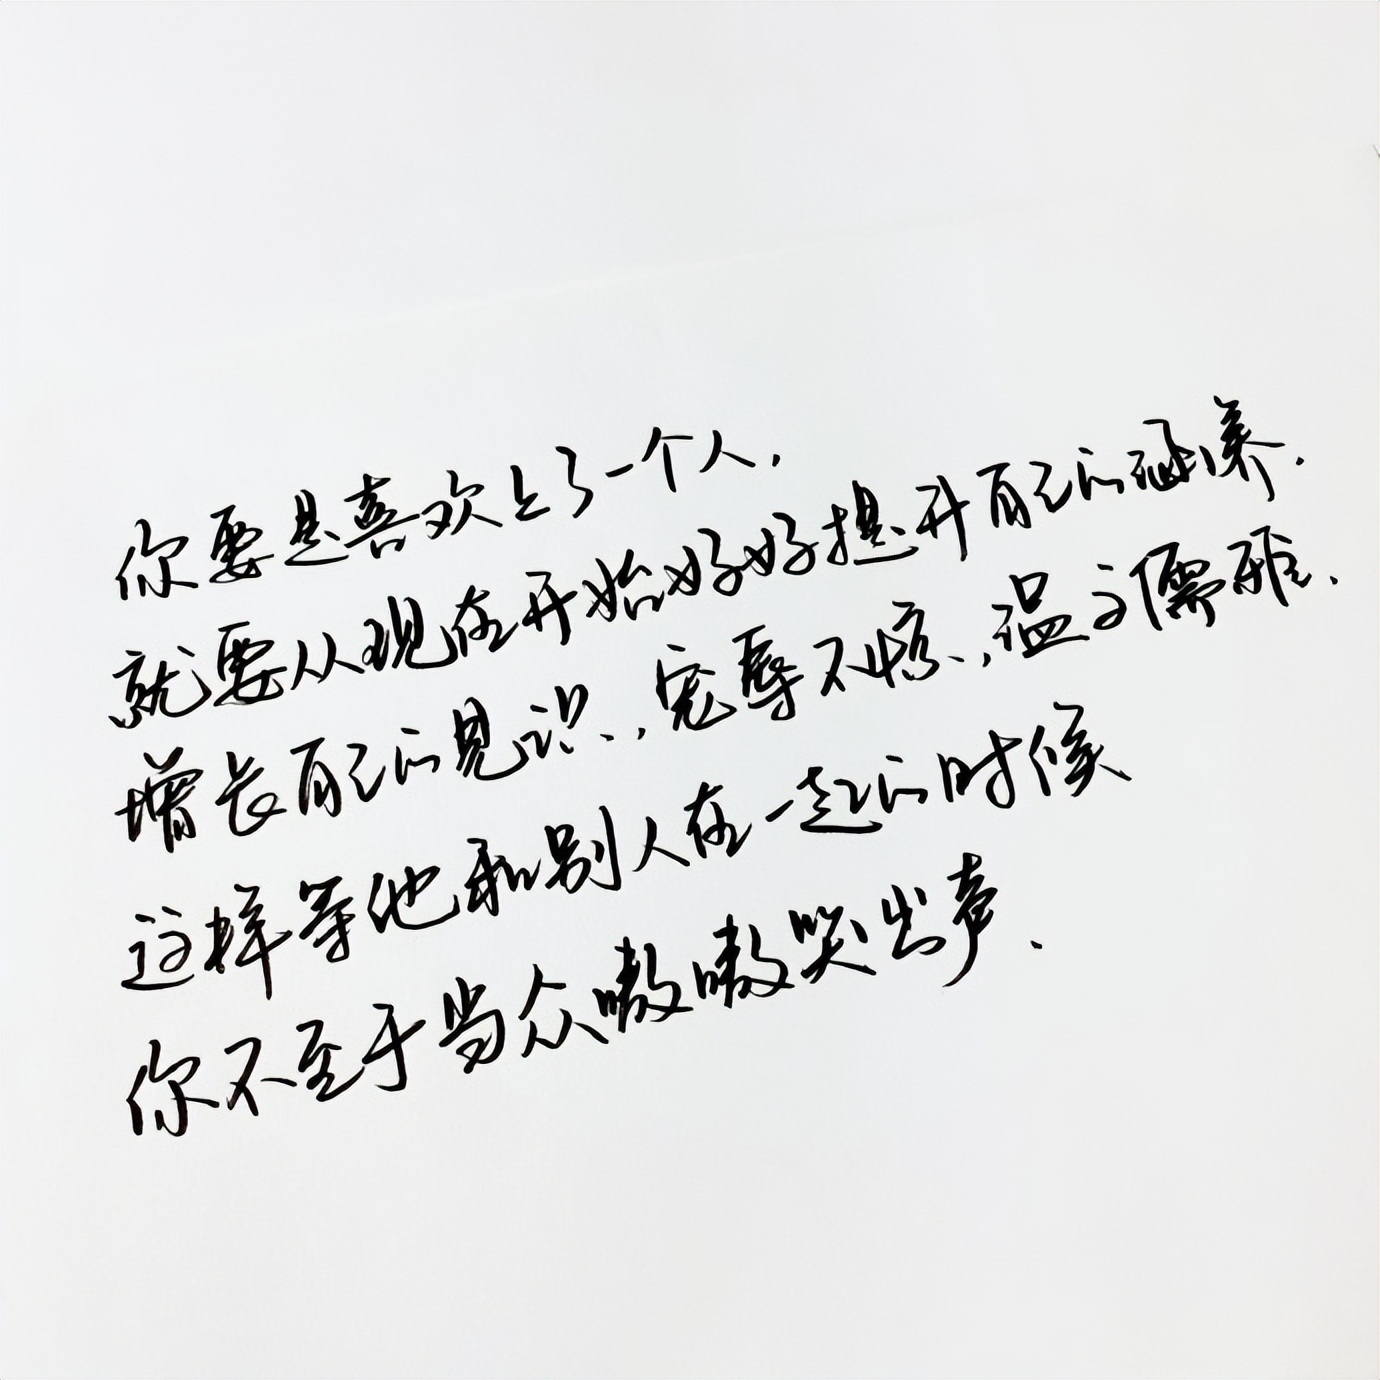 你要是喜欢上了一个人,
就要从现在开始好好提升自己的涵养.
增长自己的见识.,宠辱不惊.,温文儒雅.
这样等他和别人在一起的时候
你不至于当众嗷嗷哭出声.